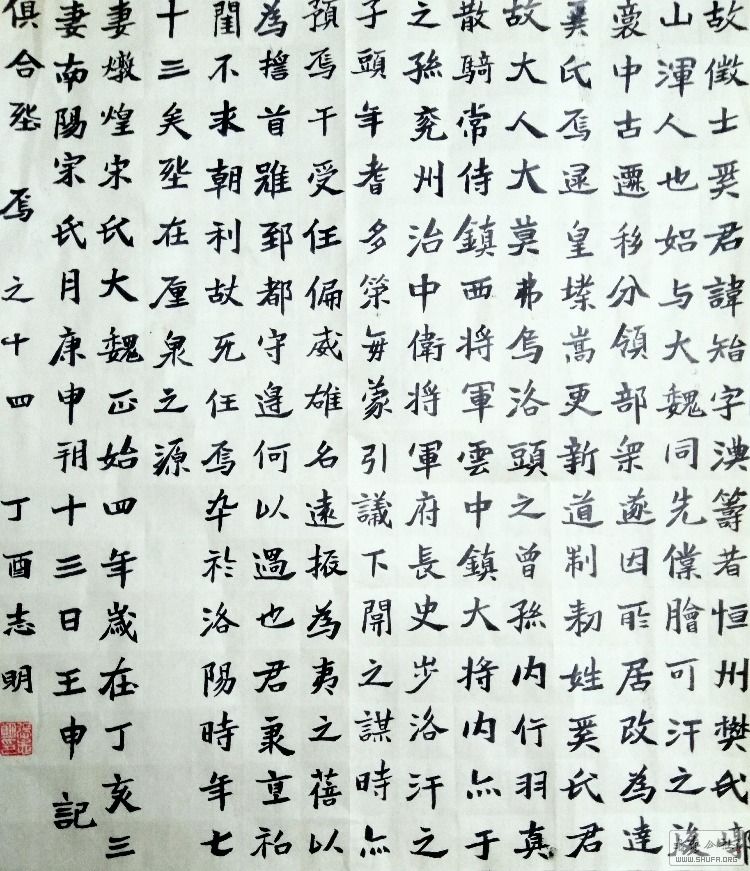 故徵士奚君諱智字淟籌者恒州樊氏崞
山渾人也始与大魏同先儻膾可汗之後
裔中古遷移分領部眾遂因所居改為達
奚氏焉逮皇業嵩更新道制勑姓奚氏君
故大人大莫弗烏洛頭之曾孫内行羽真
散騎常侍鎮西将軍雲中鎮大将内亦于
之孫兖州治中衛将軍府長史步洛汗之
子頭年耆多策每蒙引議下關之謀時亦
預焉干受任偏威雄名遠振為夷之蓓以
為誓首雖郅都守邊何以過也君秉直私
閨不求朝利故死任焉卒於洛陽時年七
十三矣坙在廛泉之源
妻燉煌宋氏大魏正始四年歲在丁亥三
妻南陽宋氏月庚申朔十三日王申記
俱合坙焉之十四 丁酉志明
WWW.SHUFA.ORG